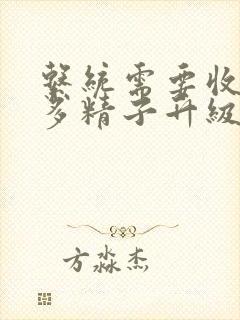 繫統需要收
多精子升級
方淼杰